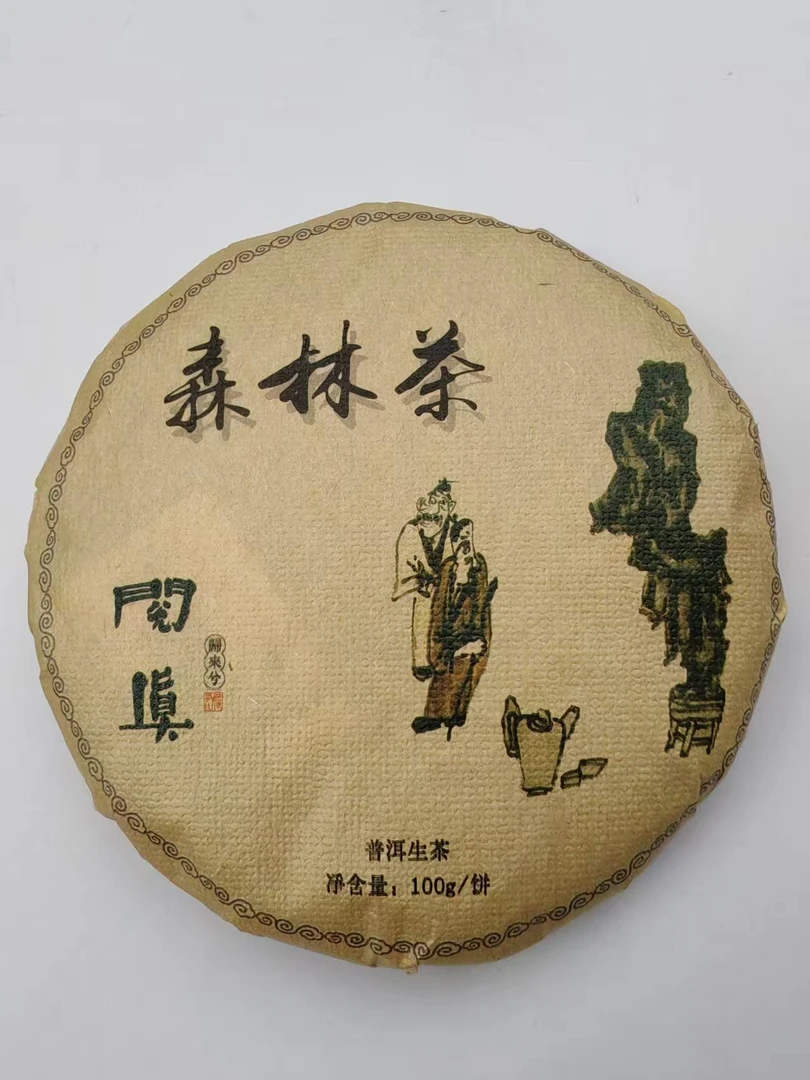 森林茶
閱真
歸來兮
普洱生茶
净含量：100g/饼